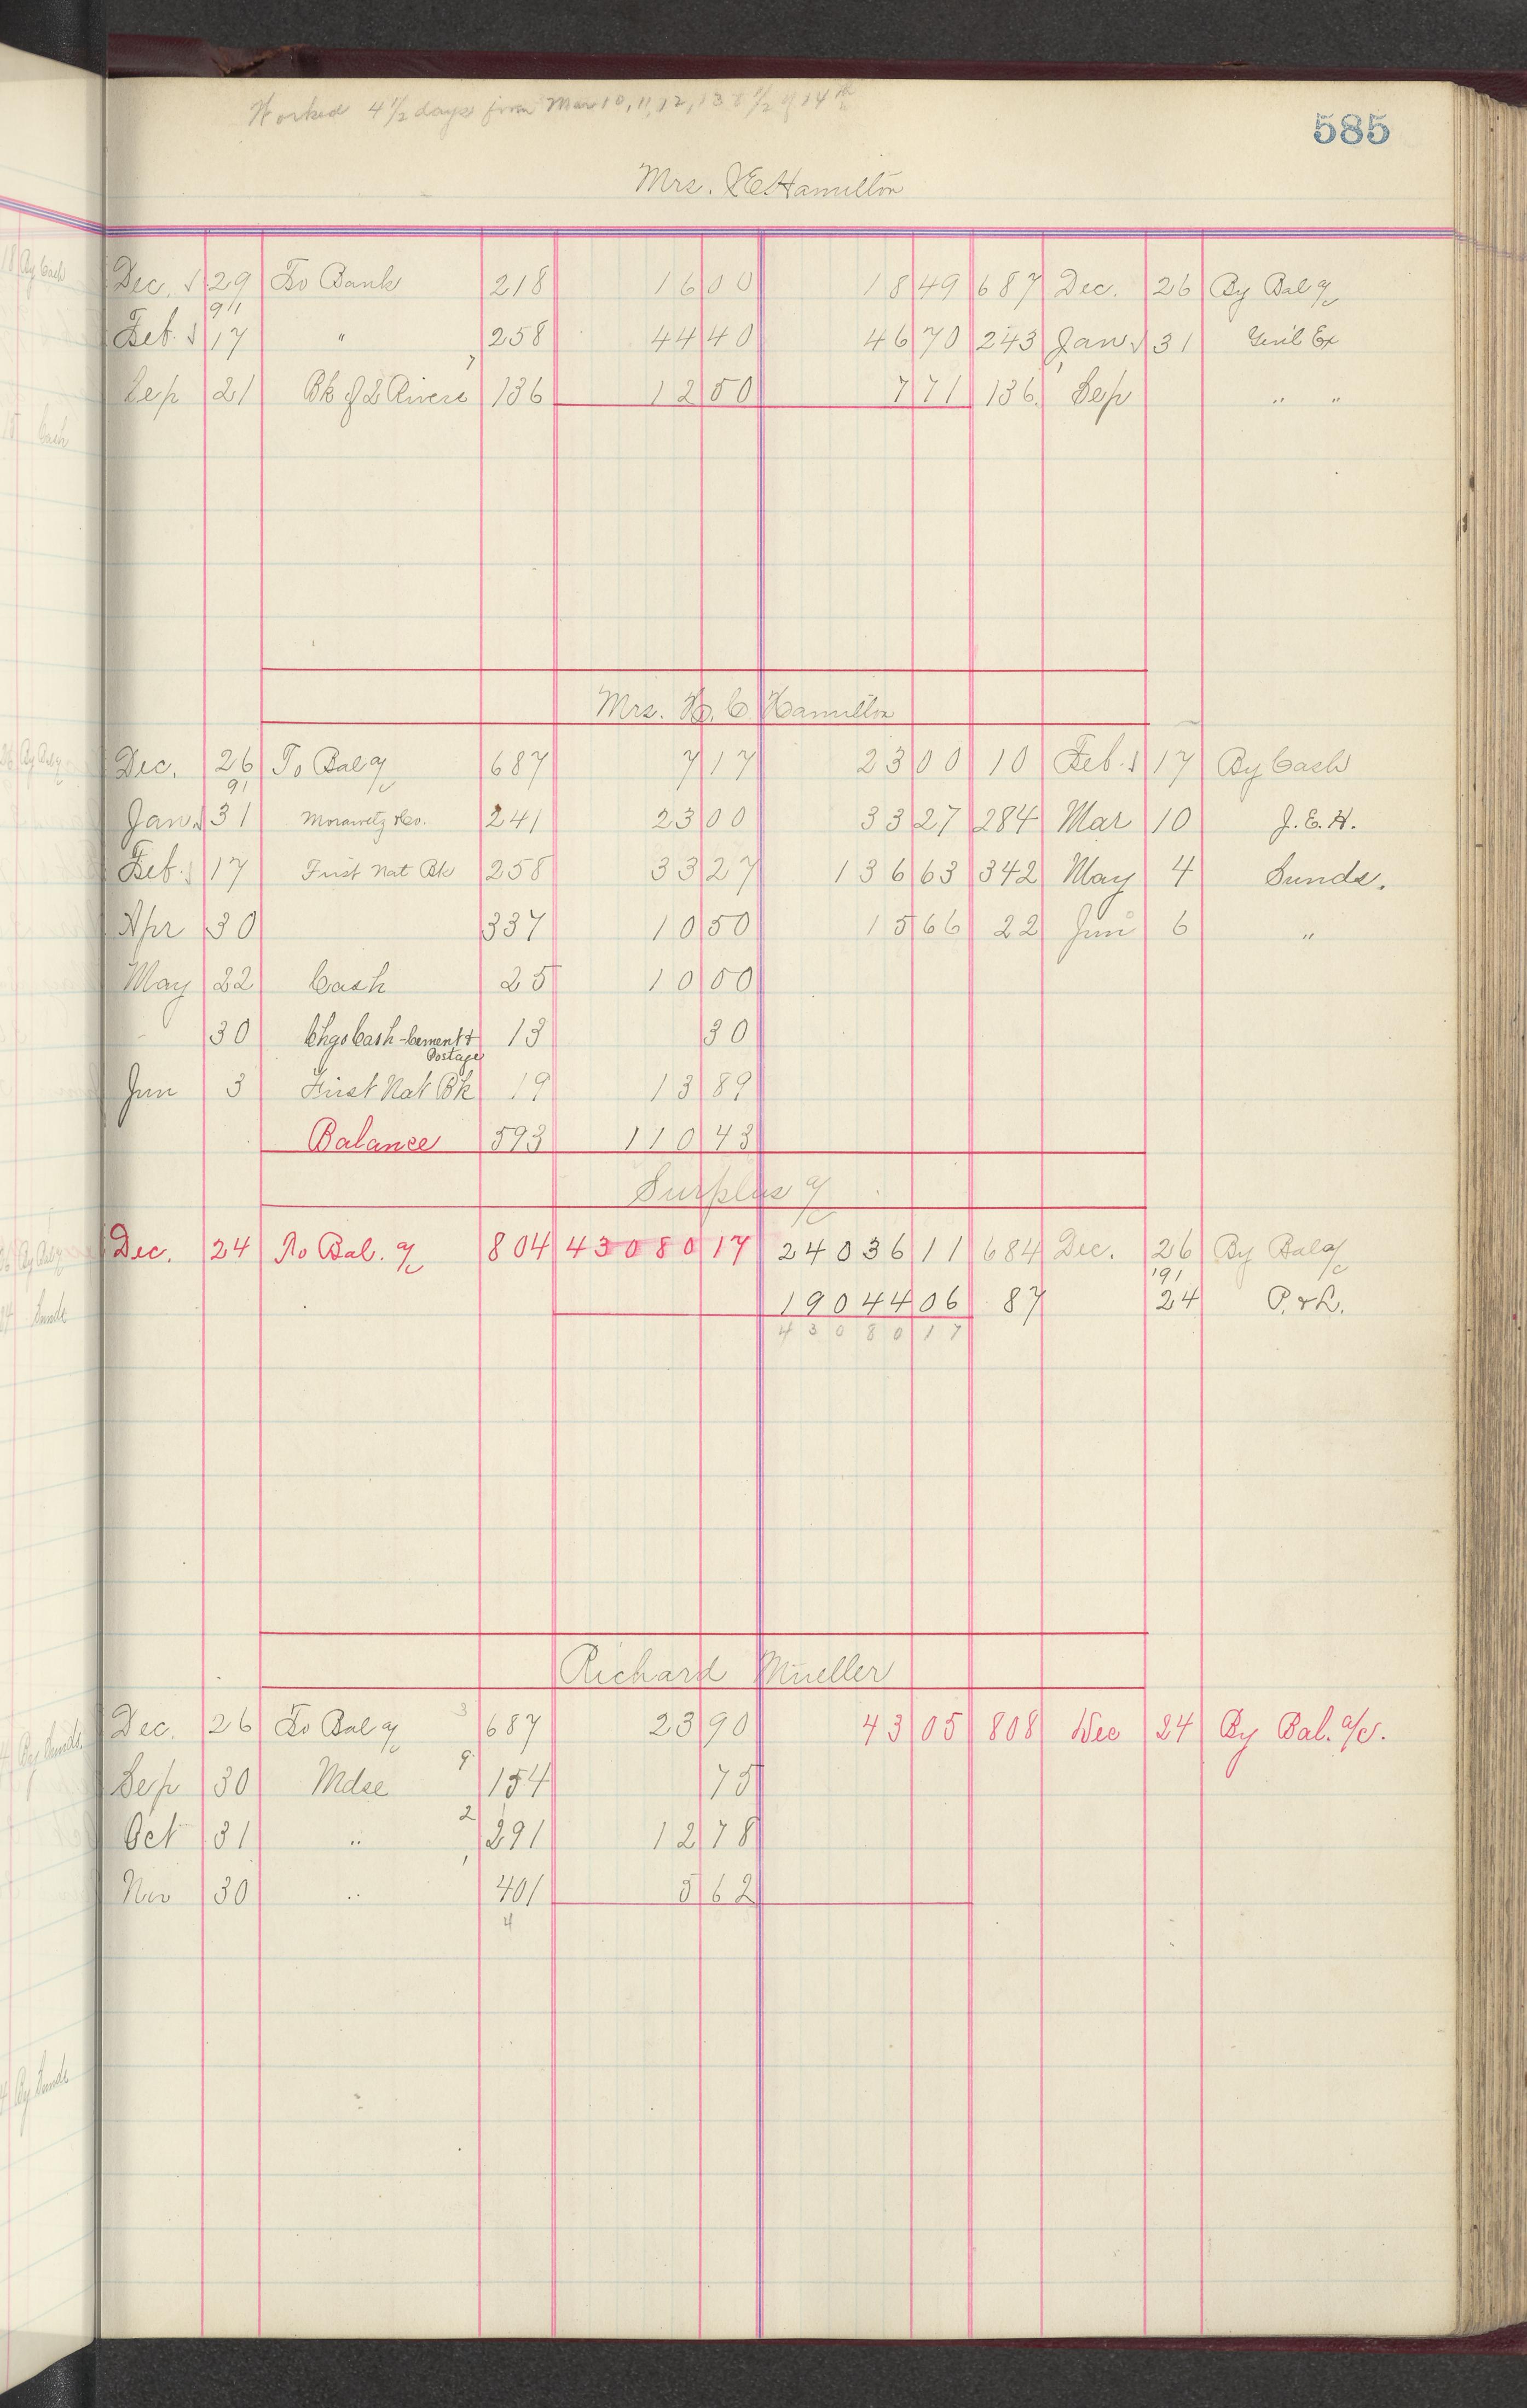 Worked 4 1/2 days from Mar 10, 11, 12, 13 & 1/2 of 14th
585
Mrs. J E Hamilton
Dec. 29 To Bank 218 16 00 18 49 687 Dec. 26 By Bal a/c
91
Feb. 17 " 258 44 40 46 70 243 Jan. 31 Gen'l Ex
Sep 21 Bk of 2 Rivers 136 12 50 7 71 136 Sep " "
Mrs. H. C Hamilton
Dec. 26 To Bal a/c 687 7 17 23 00 10 Feb. 17 By Cash
91
Jan. 31 Morawetz & Co. 241 23 00 33 27 284 Mar 10 J. E. H.
Feb. 17 First Nat Bk 258 33 27 136 63 342 May 4 Sunds.
Apr 30 337 10 50 15 66 22 Jun 6 "
May 22 Cash 25 10 00
30 Chgo Cash - Cement & 13 30
Postage
Jun 3 First Nat Bk 19 13 89
Balance 593 110 43
Surplus a/c
Dec. 24 To Bal. a/c 804 43080 17 24036 11 684 Dec. 26 By Bal a/c
'91
19044 06 87 24 P. & L.
43080 17
Richard Mueller
Dec. 26 To Bal a/c 3 687 23 90 43 05 808 Dec 24 By Bal. a/c.
Sep 30 Mdse 9 154 75
Oct 31 " 2 291 12 78
Nov 30 " 1 401 5 62
4